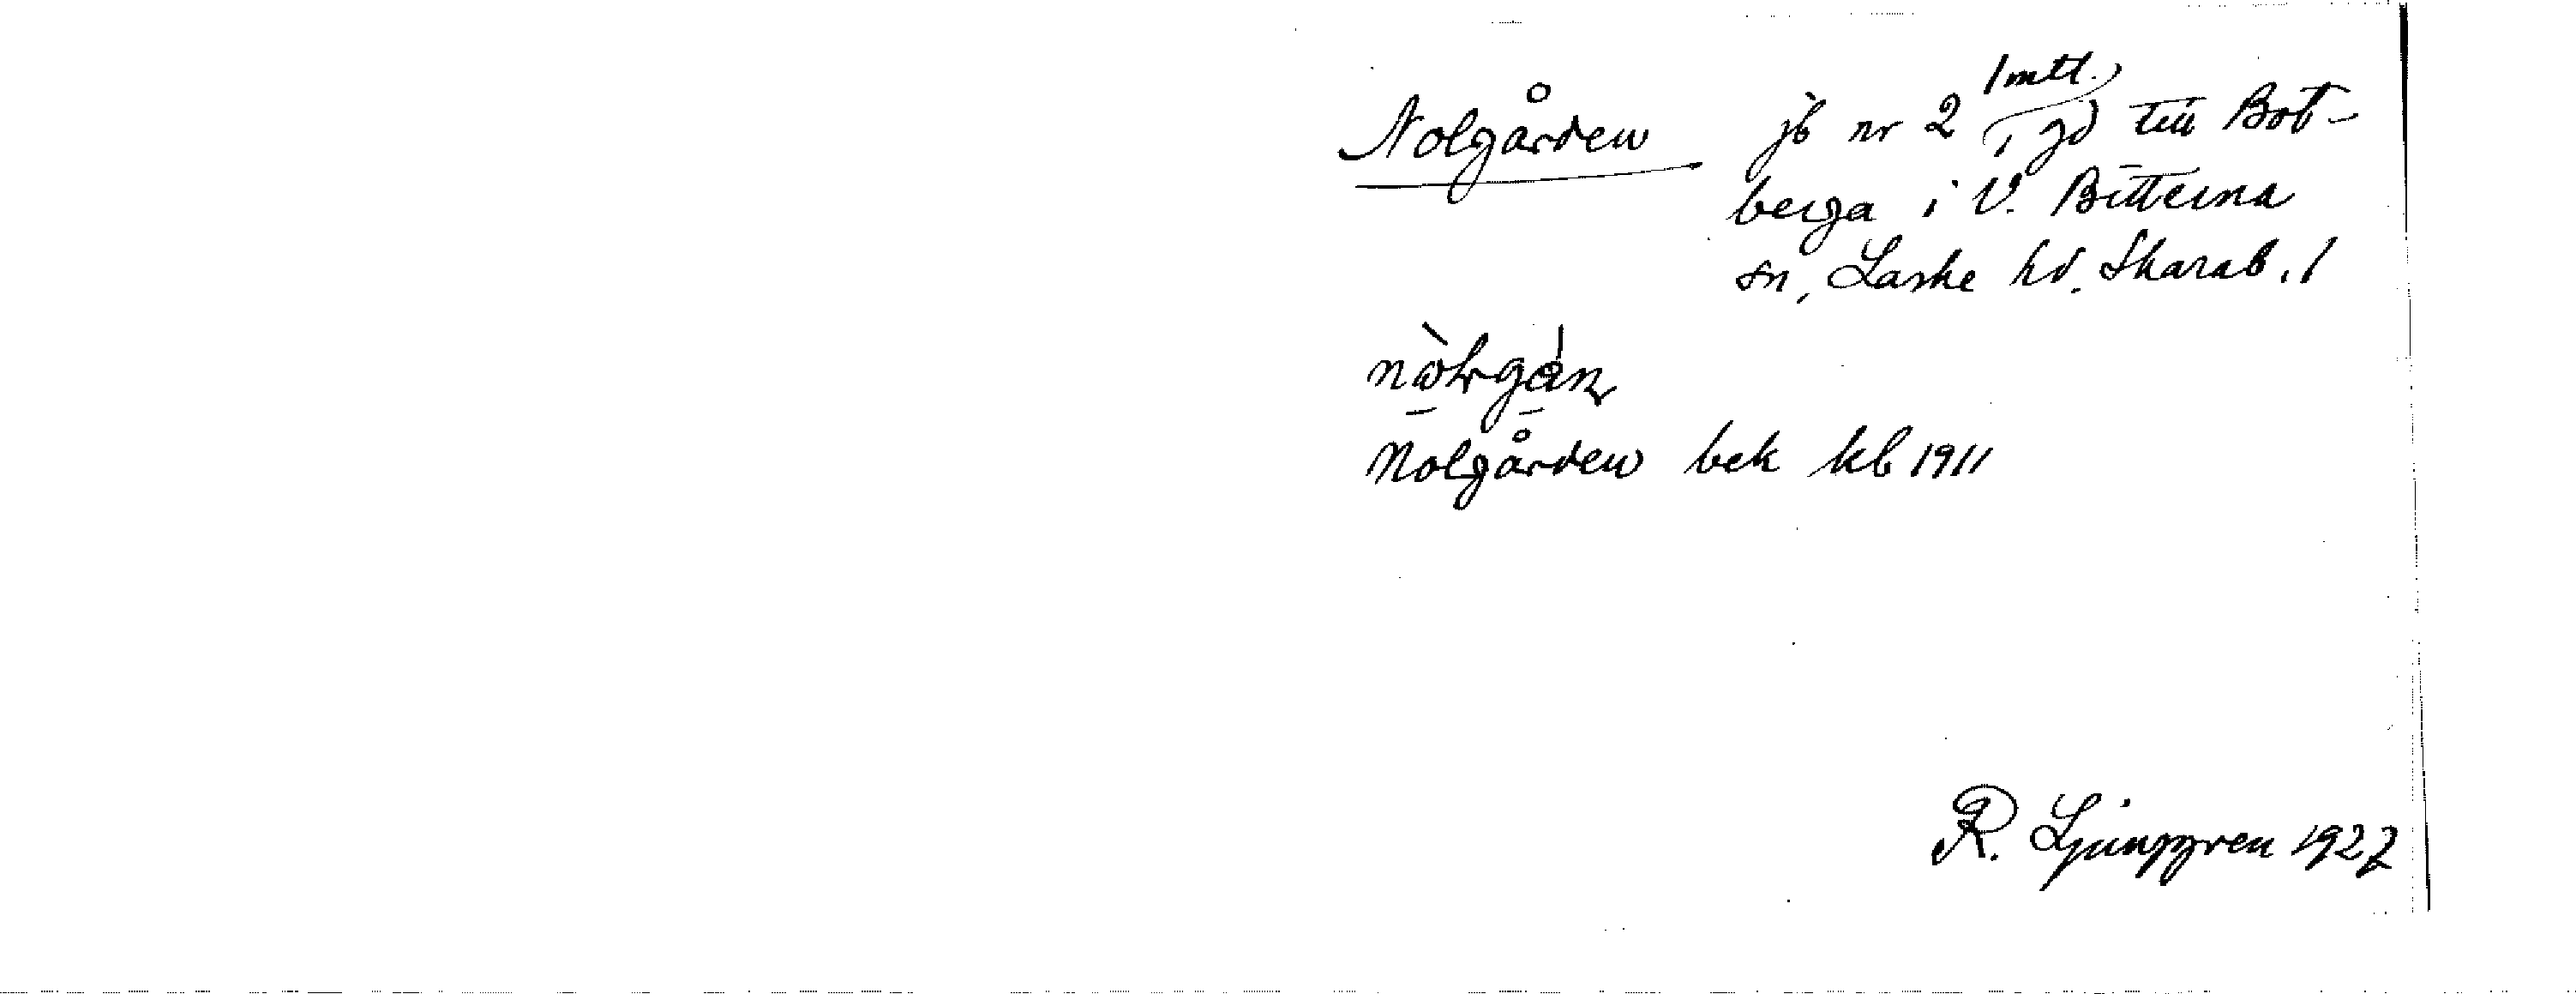 Nolgården jb nr 2 1 mtl., gd till Bot-
berga i V. Bitterna
sn, Laske hd. Skarab. l
Nolgården bek kb 1911
R. Ljunggren 1927